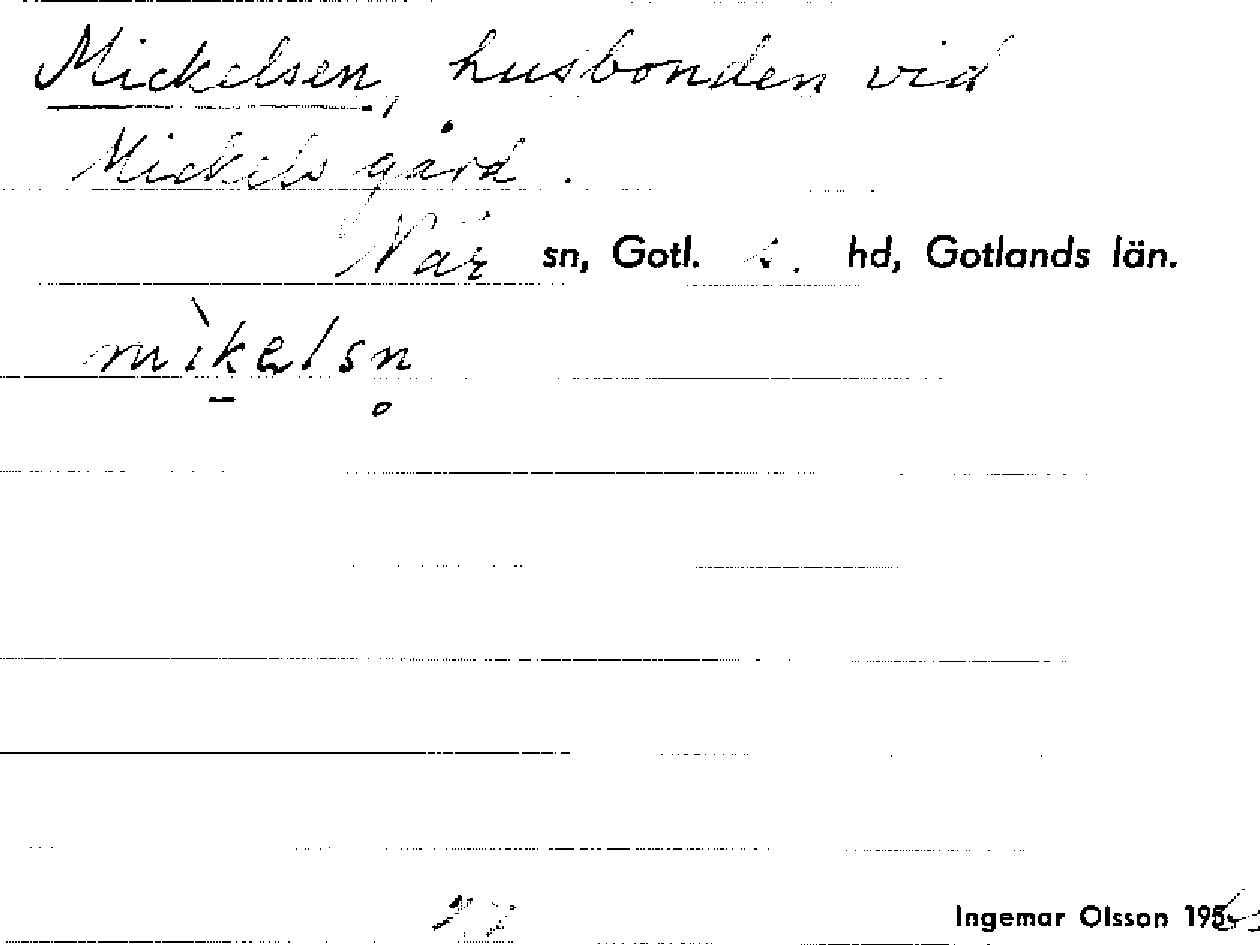 Mickelsen, husbonden vid
Mickels gård.
När sn, Gotl. s. hd, Gotlands län.
mìkelsn
Ingemar Olsson 195